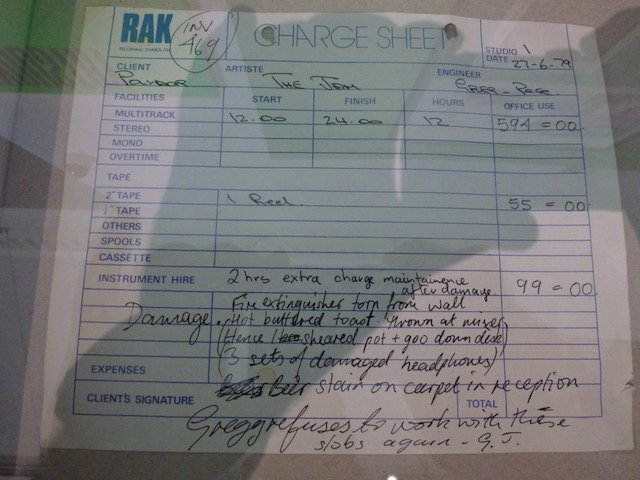 RAK INV 469 CHARGE SHEET
RECORDING STUDIOS LTD
STUDIO 1
DATE 27-6-79
CLIENT ARTISTE ENGINEER
Polydor The Jam
FACILITIES START FINISH HOURS OFFICE USE
MULTITRACK 12.00 24.00 12 594 = 00.
STEREO
MONO
OVERTIME
TAPE
2" TAPE 1 Reel. 55 = 00
1" TAPE
OTHERS
SPOOLS
CASSETTE
INSTRUMENT HIRE 2 hrs extra charge maintainence 99 = 00.
after damage
Fire extinguisher torn from wall
Damage. Hot buttered toast thrown at mixer
(Hence 1 sheared pot + goo down desk)
(3 sets of damaged headphones)
EXPENSES
beer stain on carpet in reception
CLIENT'S SIGNATURE TOTAL
Gregg refuses to work with these
slobs again - G.J.